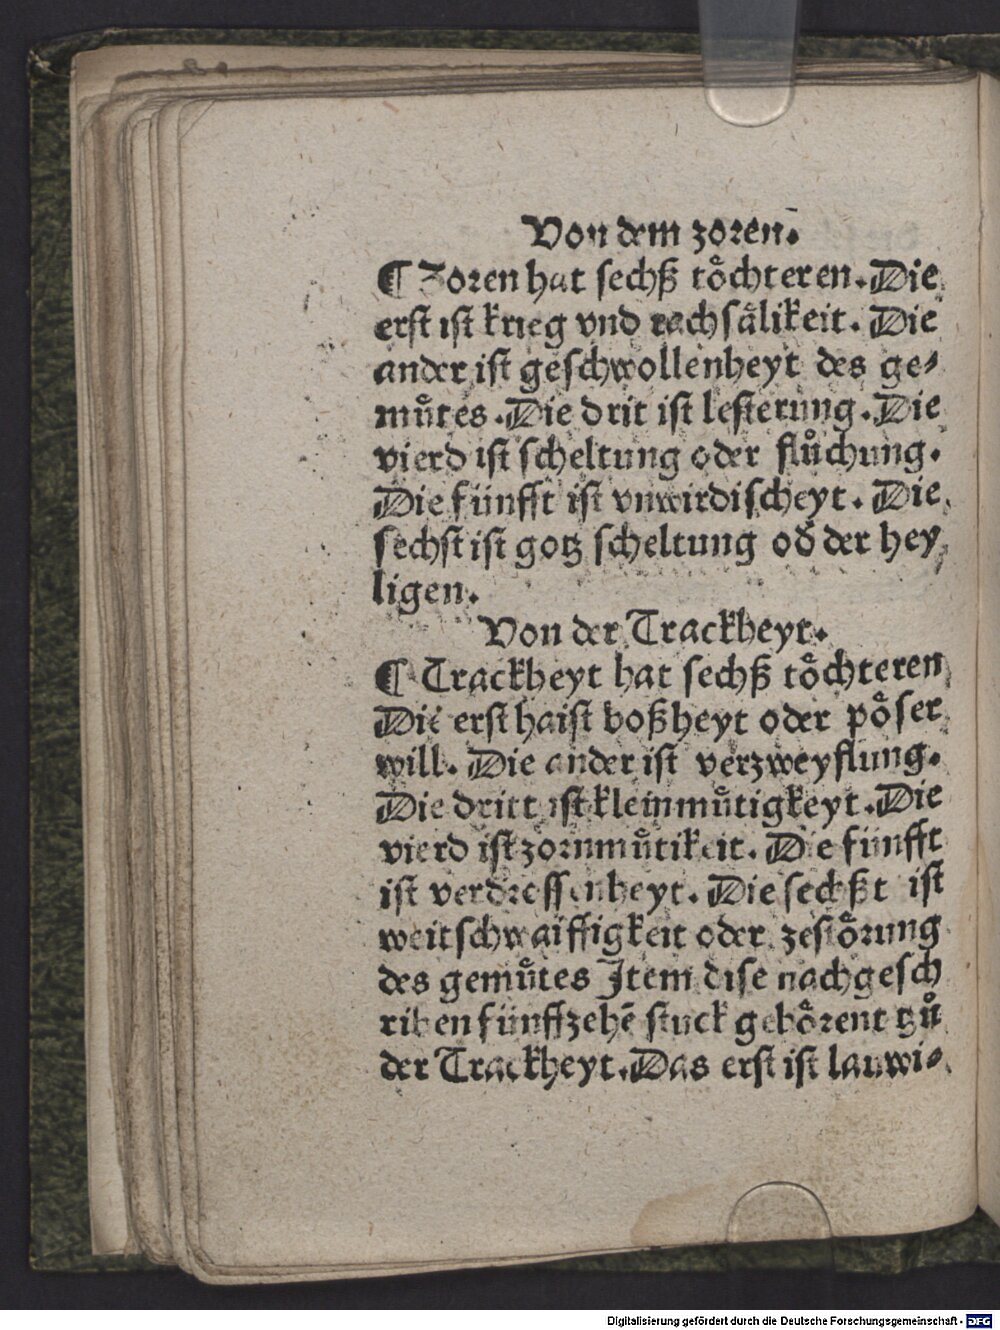 Von dem zoren.
¶ Zoren hat sechß toͤchteren. Die
erst ist krieg vnd rachsaͤlikeit. Die
ander ist geschwollenheyt des ge⸗
muͤtes. Die drit ist lesterung. Die
vierd ist scheltung oder fluͦchung.
Die fünfft ist vnwirdischeyt. Die
sechst ist gotz scheltung oð der hey⸗
ligen.
Von der Trackheyt.
¶ Trackheyt hat sechß toͤchteren
Die erst haist boßheyt oder poͤser
will. Die ander ist verzweyflung.
Die dritt ist kleinmuͤtigkeyt. Die
vierd ist zornmuͤtikeit. Die fünfft
ist verdrossenheyt. Die sechßt ist
weitschwaiffigkeit oder zestoͤrung
des gemuͤtes Item dise nachgesch
riben fünffzehē stuck gehoͤrent tzuͦ
der Trackheyt. Das erst ist lauwi⸗
Digitalisierung gefördert durch die Deutsche Forschungsgemeinschaft - DFG